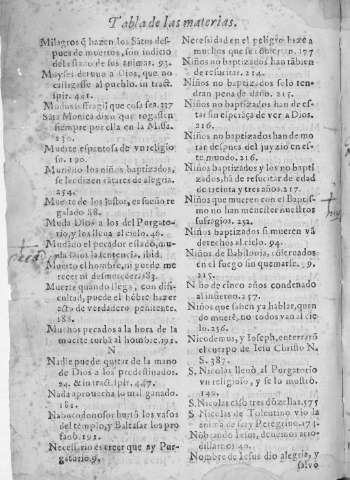 Tabla de las materias.
Milagros q̃ hazen los Sãtos des-
pues de muertos, son indicio
del estado de sus animas. 93.
Moysen detuuo a Dios, que no
castigasse al pueblo. in tract.
spir. 401.
Modus suffragij que cosa sea. 337
Sãta Monica dixo que rogassen
siempre por ella en la Missa.
230.
Muerte espantosa de vn religio
so. 190.
Muriẽdo los niños baptizados,
se les dizen cãtares de alegria.
254.
Muerte de los justos, es sueño re
galado. 88.
Muda Dios a los del Purgato-
rio, y los lleua al cielo. 46.
Mudado el pecador estado, mu-
da Dios la sentencia. ibid.
Muerto el hombre, ni puede me
recer ni desmerecer. 183.
Muerte quando llega, con difi-
cultad, puede el hõbre hazer
acto de verdadero penitente.
182.
Muchos pecados a la hora de la
muerte turbã al hombre. 191.
N
Nadie puede quitar de la mano
de Dios a los predestinados.
24. & in tract. spir. 447.
Nada aprouecha lo mal ganado.
182.
Nabucodonosor hurtó los vasos
del templo, y Baltasar los pro
fanó. 191.
Necessario es creer que ay Pur-
gatorio. 9.
Necesidad en el peligro haze a
muchos que se cõuierten. 177
Niños no baptizados han tãbien
de resuscitar. 214.
Niños no baptizados solo ten-
dran pena de daño. 215.
Niños no baptizados han de es-
tar sin esperãça de ver a Dios.
216.
Niños no baptizados han de mo
rar despues del juyzio en es-
te mundo. 216.
Niños baptizados y los no bapti
zados, hã de resuscitar de edad
de treinta y tres años. 217.
Niños que mueren con el Baptis-
mo no han menester nuestros
sufragios. 252.
Niños baptizados si mueren vã
derechos al cielo. 94.
Niños de Babilonia,
en el fuego sin quemarse.
215.
Niño de cinco años condenado
al infierno. 257.
Niños que saben ya hablar, quan
do muerẽ, no todos van al cie-
lo. 256.
Nicodemus, y Joseph, enterrarõ
el cuerpo de Iesu Christo N.
S. 387.
S. Nicolas lleuò al Purgatorio
vn religioso, y se lo mostrò.
149.
S. Nicolas casò tres dõzellas. 175
S. Nicolas de Tolentino vio la
anima de fray Peregrino. 174.
Nõbrando Iesus, deuemos arro-
dillarnos. 40.
Nombre de Iesus dio alegria, y
salvó